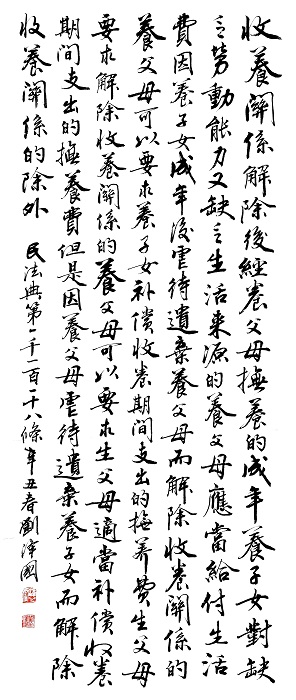 收養關係解除後經養父母撫養的成年養子女對缺
乏勞動能力又缺乏生活来源的養父母應當給付生活
費因養子女成年後虐待遺棄養父母而解除收養關係的
養父母可以要求養子女补償收養期間支出的撫养費生父母
要求解除收養關係的養父母可以要求生父母適當补償收養
期間支出的撫養費但是因養父母虐待遺棄養子女而解除
收養關係的除外 民法典第一千一百一十八條 辛丑春劉泽國